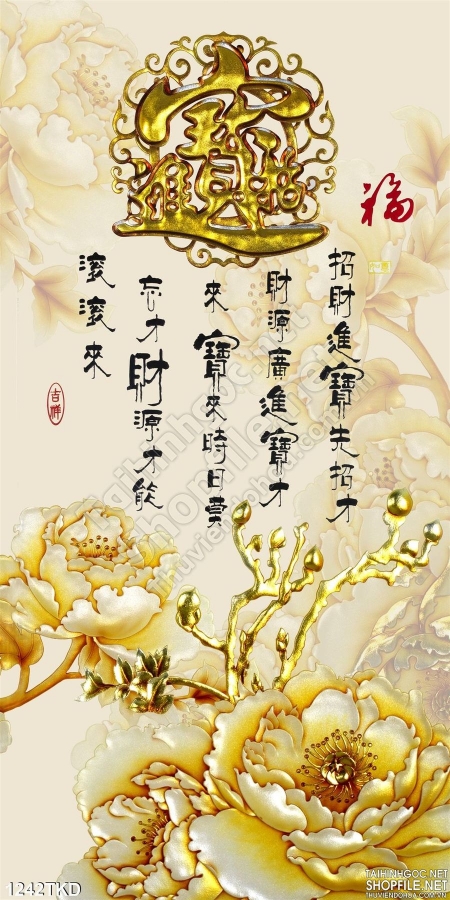 招財進寶
福
招財進寶先招才
財源廣進寶才
來寶來時日莫
忘才財源才能
滾滾來
吉祥
1242TKD
TAIHINHGOC.NET
SHOPFILE.NET
THUVIENDOHOA.VN